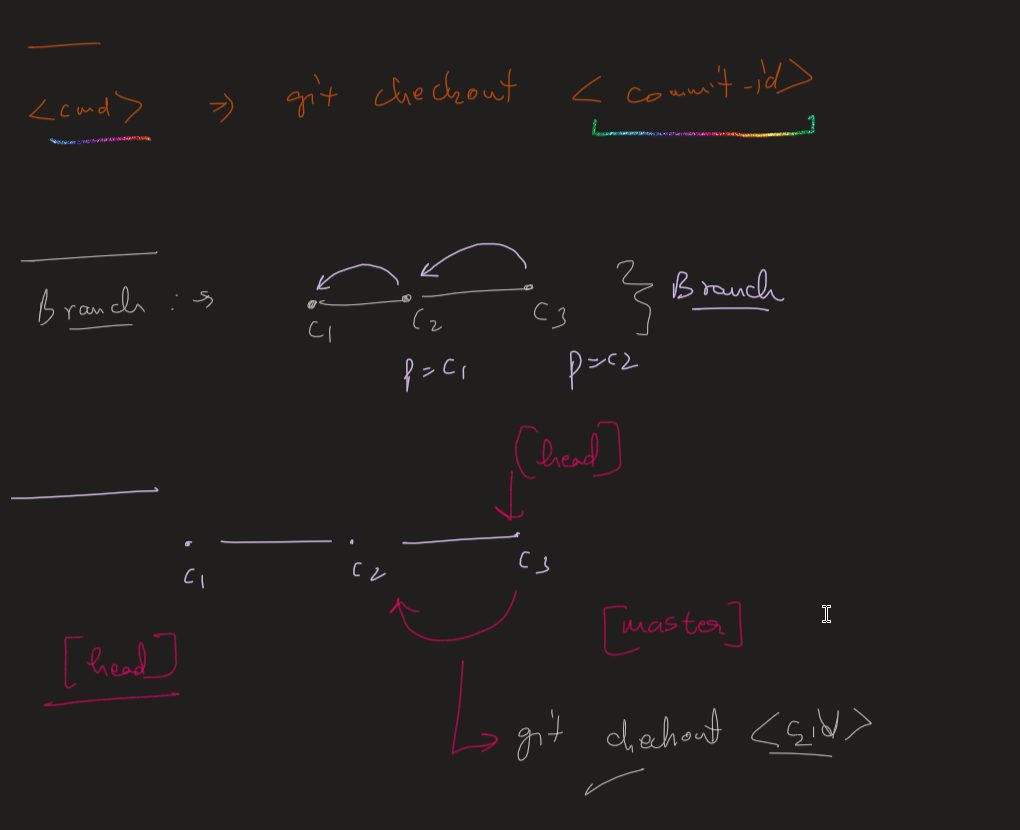 <cmd> => git checkout <commit-id>
Branch :→ C1 C2 C3 } Branch
p=C1 p=C2
[head]
C1 C2 C3
[master]
[head]
git checkout <C2id>